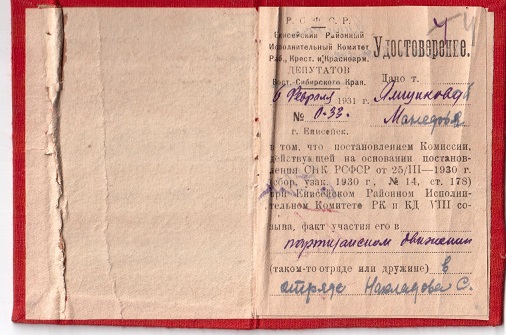 Р. С. Ф. С. Р.
Енисейский Районный
Исполнительный Комитет
Раб., Крест. и Красноарм.
ДЕПУТАТОВ
Вост.-Сибирского Края.
6 Февраля 1931 г.
№ 0.33
г. Енисейск.
Удостоверение.
Дано т.
в том, что постановлением Комиссии,
действующей на основании постанов-
ления СНК РСФСР от 25/III—1930 г.
(собр. узак. 1930 г., № 14, ст. 178)
при Енисейском Районном Исполни-
тельном Комитете РК и КД VIII со-
зыва, факт участия его в
партизанском движении
(таком-то отряде или дружине) в
отряде С.